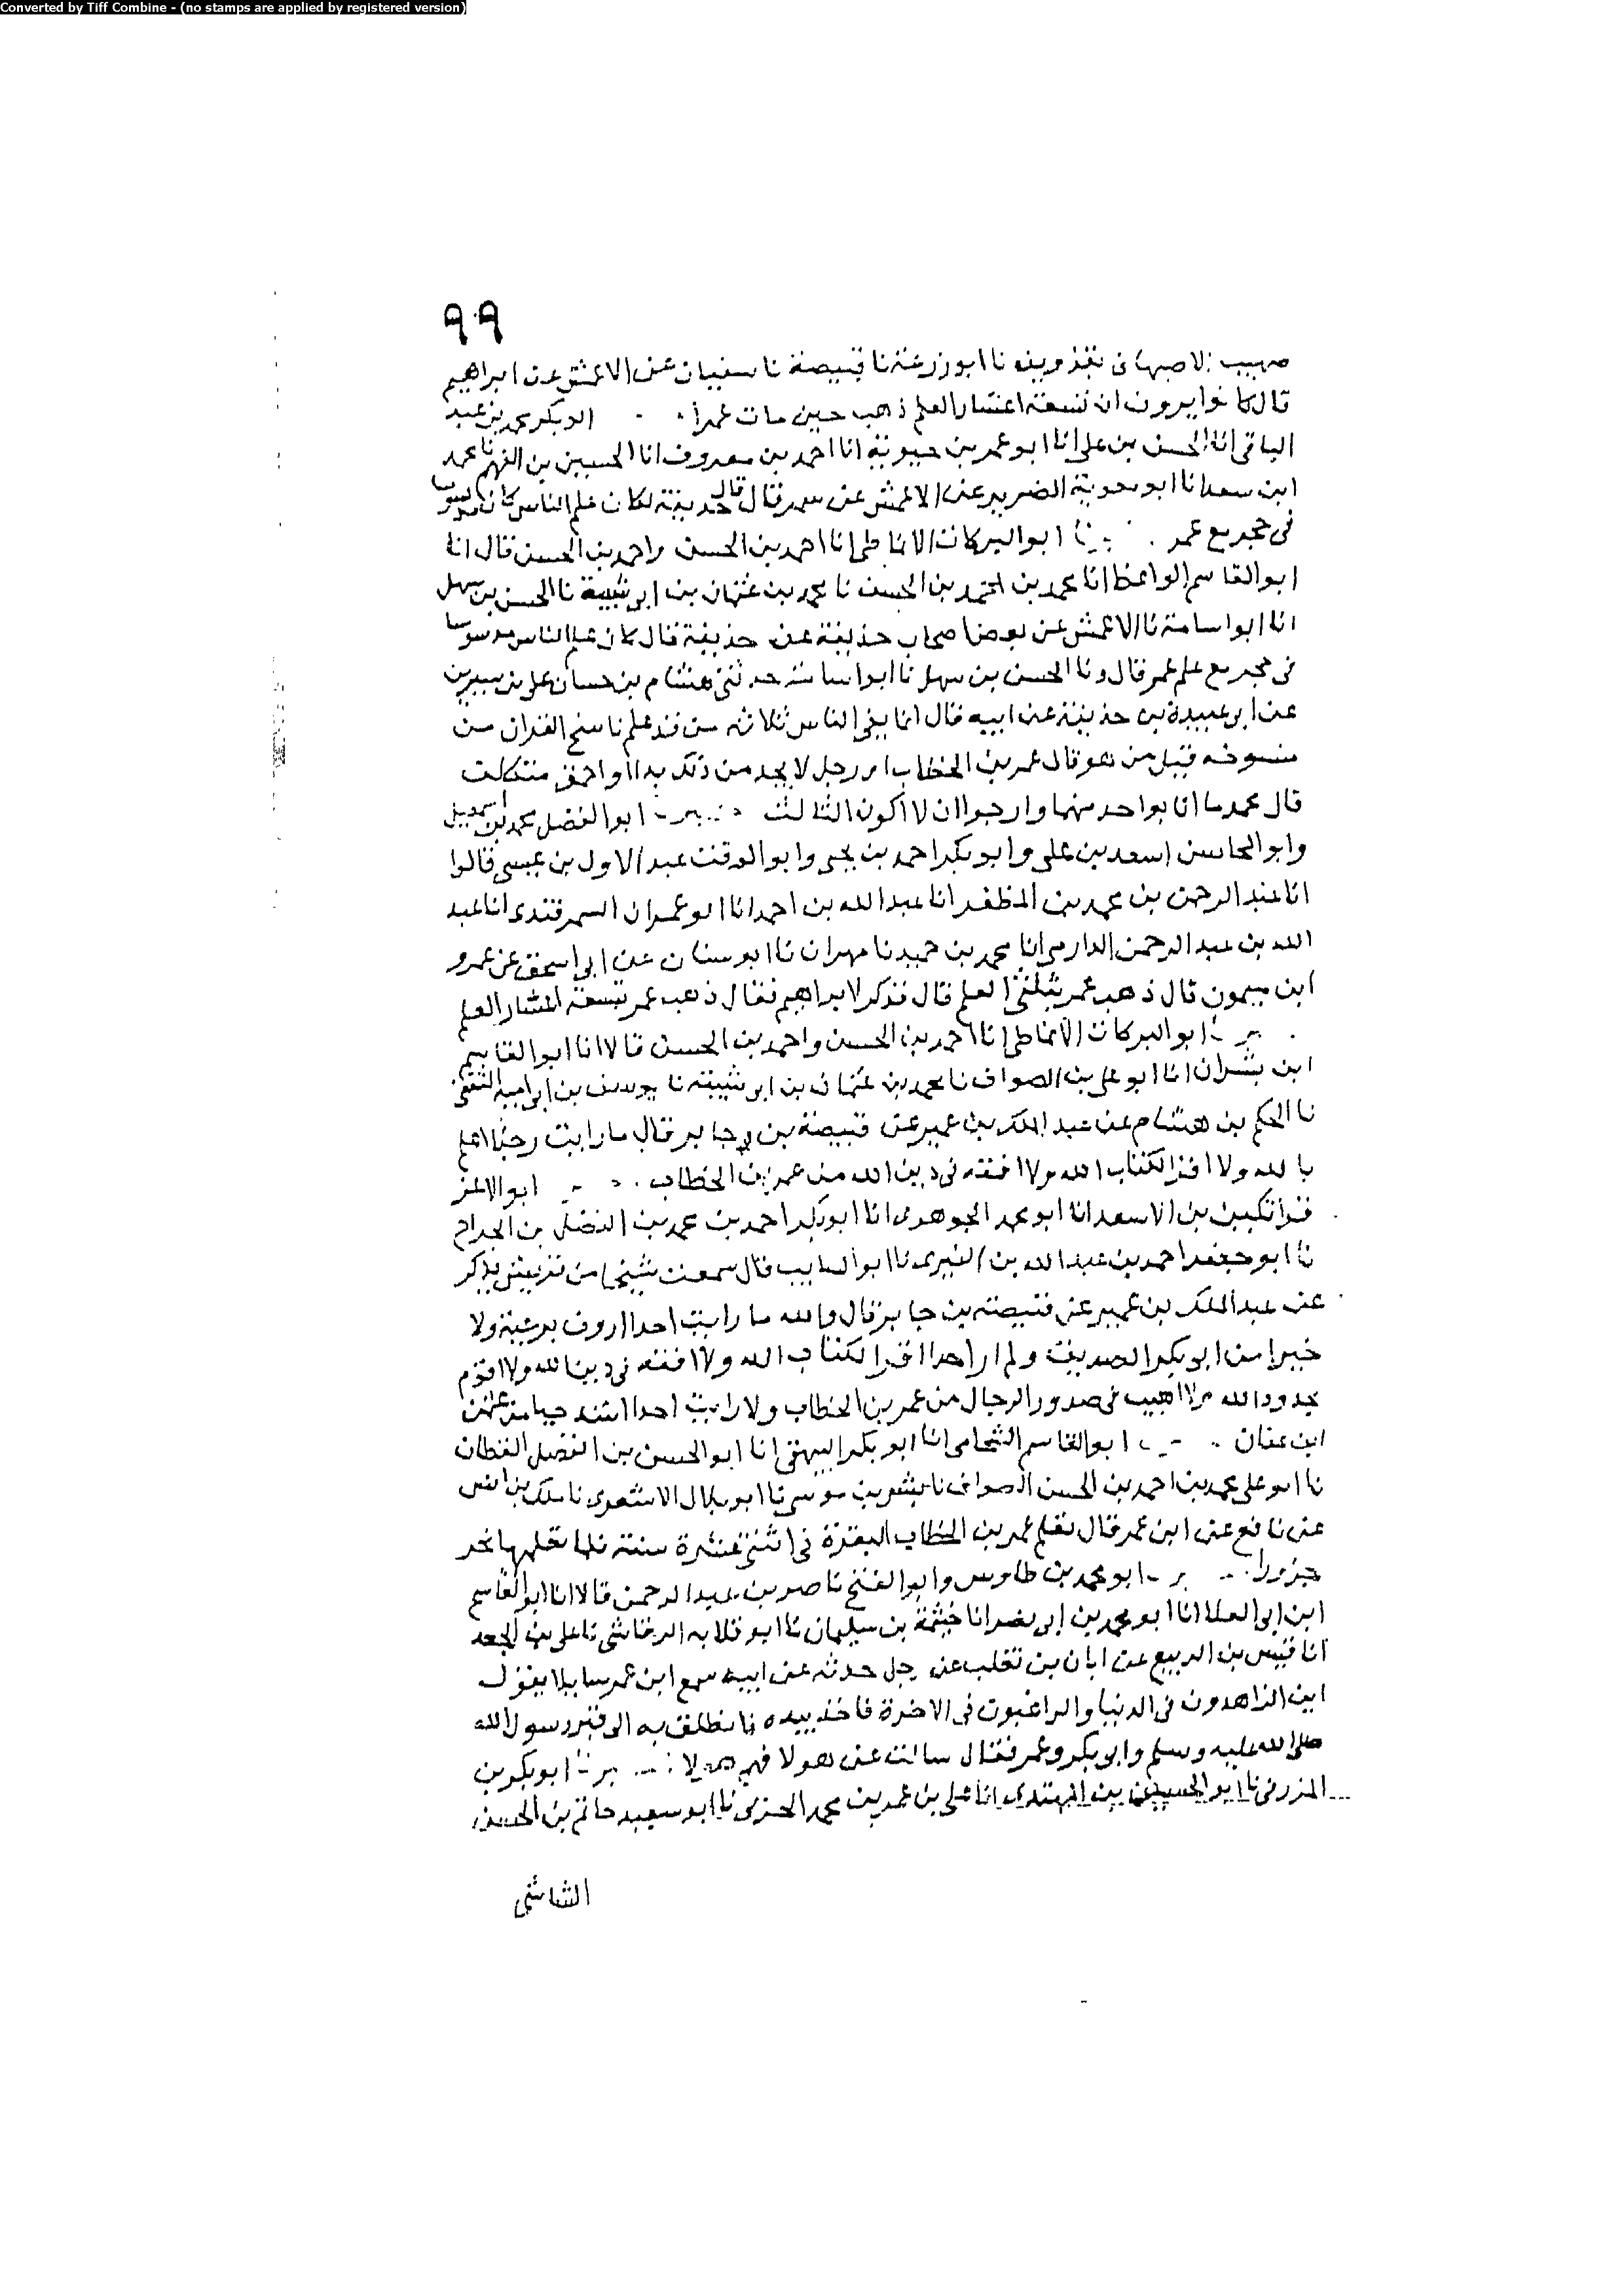 Converted by Tiff Combine - (no stamps are applied by registered version)
٩٩
صهيب الاصبهانى بقزوين نا ابو زرعة نا قبيصة نا سفيان عن الاعمش عن ابراهيم
قال كانوا يرون ان تسعة اعشار العلم ذهب حين مات عمر ابو بكر محمد بن عبد
الباقى انا الحسن بن على انا ابو عمر بن حيوية انا احمد بن معروف انا الحسين بن الفهم نا محمد
ابن سعد انا ابو معوية الضرير عن الاعمش عن شمر قال قال حذيفة لكان علم الناس كان مدسوسا
فى حجر مع عمر ابو البركات الانماطى انا احمد بن الحسن واحمد بن الحسن قال انا
ابو القاسم الواعظ انا محمد بن احمد بن الحسن نا محمد بن عثمان بن ابى شيبة نا الحسن بن سهل
انا ابو اسامة نا الاعمش عن بعض اصحاب حذيفة عن حذيفة قال كان علم الناس مدسوسا
فى حجر مع علم عمر قال ونا الحسن بن سهل نا ابو اسامة حدثنى هشام بن حسان على بن سيرين
عن ابى عبيدة بن حذيفة عن ابيه قال انما يفتى الناس ثلاثة من قد علم ناسخ القران من
منسوخه قيل من هو قال عمر بن الخطاب او رجل لا يجد من ذلك بدا او احمق متكلف
قال محمد ما انا بواحد منهما وارجوا ان لا اكون الثالث ابو الفضل محمد بن اسمعيل
وابو المحاسن اسعد بن على وابو بكر احمد بن يحيى وابو الوقت عبد الاول بن عيسى قالوا
انا عبد الرحمن بن محمد بن المظفر انا عبد الله بن احمد انا ابو عمران السمرقندى انا عبد
الله بن عبد الرحمن الدارمى انا محمد بن حميد نا مهران نا ابو سنان عن ابى اسحق عن عمرو
ابن ميمون قال ذهب عمر بثلثى العلم قال فذكر لابراهيم فقال ذهب عمر بتسعة اعشار العلم
ابو البركات الانماطى انا احمد بن الحسن واحمد بن الحسن قالا انا ابو القاسم
ابن بشران انا ابو على بن الصواف نا محمد بن عثمان بن ابى شيبة نا يوسف بن ابى امية الثقفى
نا الحكم بن هشام عن عبد الملك بن عمير عن قبيصة بن جابر قال ما رايت رجلا اعلم
بالله ولا اقرا لكتاب الله ولا افقه فى دين الله من عمر بن الخطاب ابو الاعز
قراتكين بن الاسعد انا ابو محمد الجوهرى انا ابو بكر احمد بن محمد بن الفضل بن الجراح
نا ابو جعفر احمد بن عبد الله بن النيرى نا ابو السايب قال سمعت شيخا من قريش يذكر
عن عبد الملك بن عمير عن قبيصة بن جابر قال والله ما رايت احدا اروف برعيته ولا
خيرا من ابو بكر الصديق ولم ار احدا اقرا لكتاب الله ولا افقه فى دين الله ولا اقوم
بحدود الله ولا اهيب فى صدور الرجال من عمر بن الخطاب ولا رايت احدا اشد حيا من عثمن
ابن عفان ابو القاسم الشحامى انا ابو بكر البيهقى انا ابو الحسن بن الفضل القطان
نا ابو على محمد بن احمد بن الحسن الصواف نا بشر بن موسى نا ابو بلال الاشعرى نا ملك بن انس
عن نافع عن ابن عمر قال تعلم عمر بن الخطاب البقرة فى اثنى عشرة سنة فلما تعلمها نحر
جزورا ابو محمد بن طاوس وابو الفتح ناصر بن عبد الرحمن قالا انا ابو القاسم
ابن ابى العلا انا ابو محمد بن ابى نصر انا خيثمة بن سليمان نا ابو قلابه الرقاشى نا على بن الجعد
انا قيس بن الربيع عن ابان بن تغلب عن رجل حدثه عن ابيه سمع ابن عمر سايلا يقول
اين الزاهدون فى الدنيا والراغبون فى الاخرة فاخذ بيده فانطلق به الى قبر رسول الله
صلى الله عليه وسلم وابو بكر وعمر فقال سالت عن هولا فهم هولا ابو بكر بن
المزرفى نا ابو الحسين بن المهتدى انا على بن عمر بن محمد الحربى نا ابو سعيد حاتم بن الحسن
الشاشى